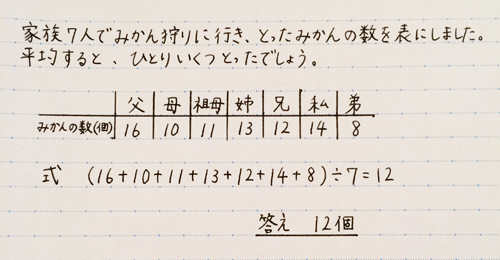 家族7人でみかん狩りに行き、とったみかんの数を表にしました。
平均すると、ひとりいくつとったでしょう。
父 母 祖母 姉 兄 私 弟
みかんの数(個) 16 10 11 13 12 14 8
式 (16+10+11+13+12+14+8)÷7=12
答え 12個